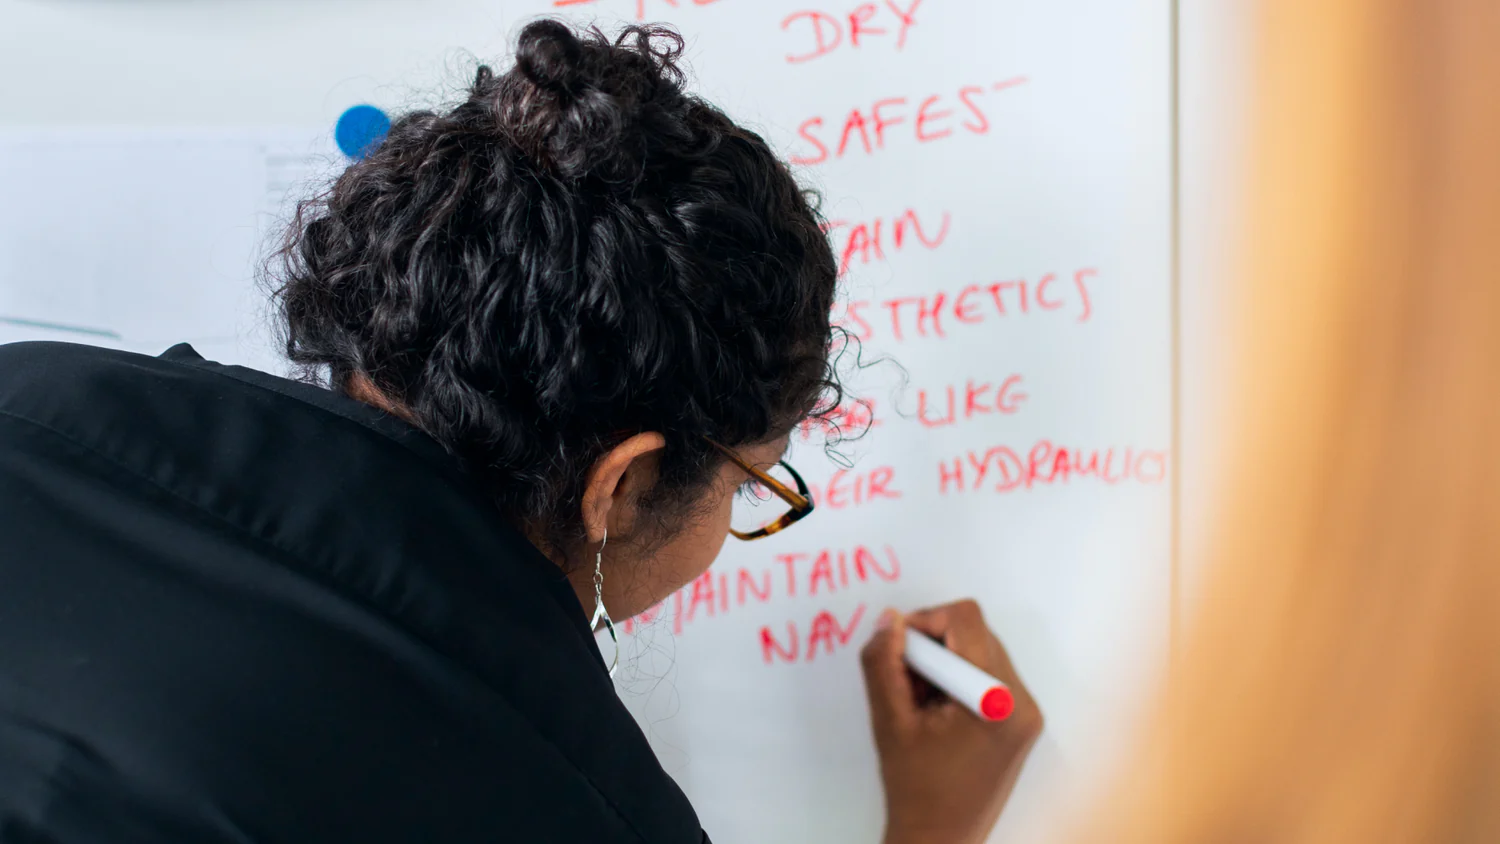 DRY
SAFEST
TAIN
STHETICS
LIKE
EIR HYDRAULIC
MAINTAIN
NAV